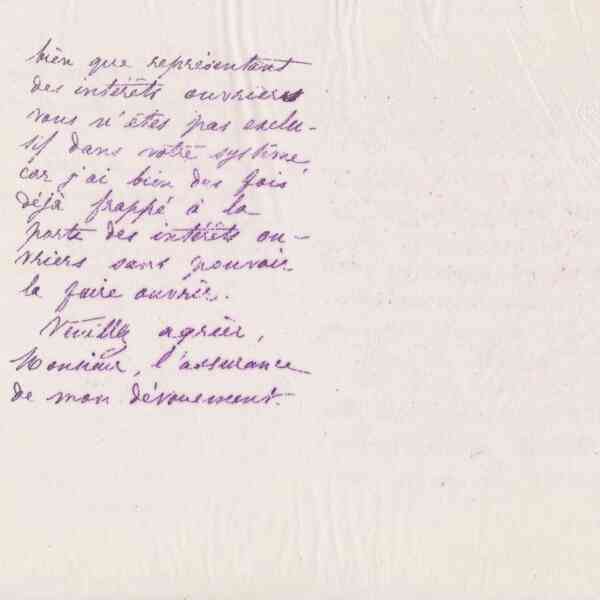 bien que représentant
des intérêts ouvriers
vous n'êtes pas exclu-
sif dans votre système,
car j'ai bien des fois
déjà frappé à la
porte des intérêts ou-
vriers sans pouvoir
la faire ouvrir.
Veuillez agréer,
Monsieur, l'assurance
de mon dévouement.